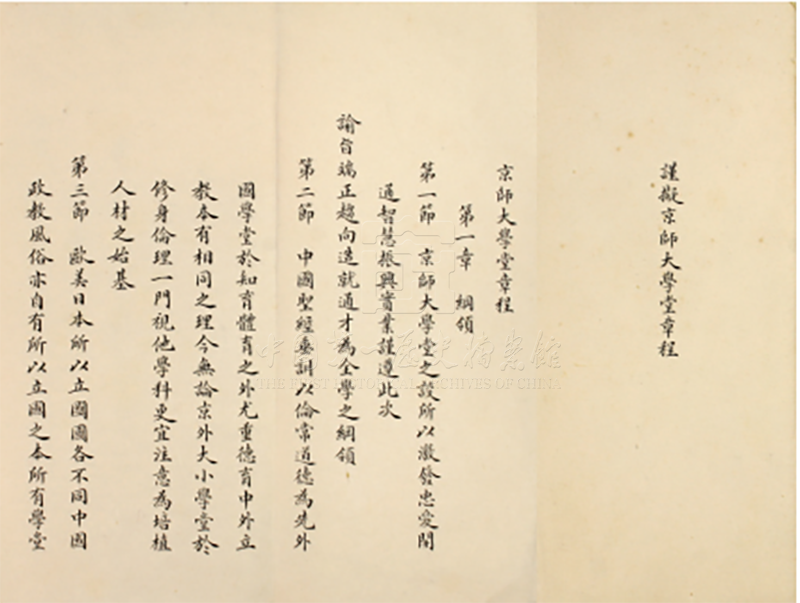 謹擬京師大學堂章程
京師大學堂章程
第一章 綱領
第一節 京師大學堂之設所以激發忠愛開
通智慧振興實業謹遵此次
諭旨端正趨向造就通才為全學之綱領
第二節 中國聖經垂訓以倫常道德為先外
國學堂於知育體育之外尤重德育中外立
教本有相同之理今無論京外大小學堂於
修身倫理一門視他學科更宜注意為培植
人材之始基
第三節 歐美日本所以立國國各不同中國
政教風俗亦自有所以立國之本所有學堂
中国第一历史档案馆
THE FIRST HISTORICAL ARCHIVES OF CHINA